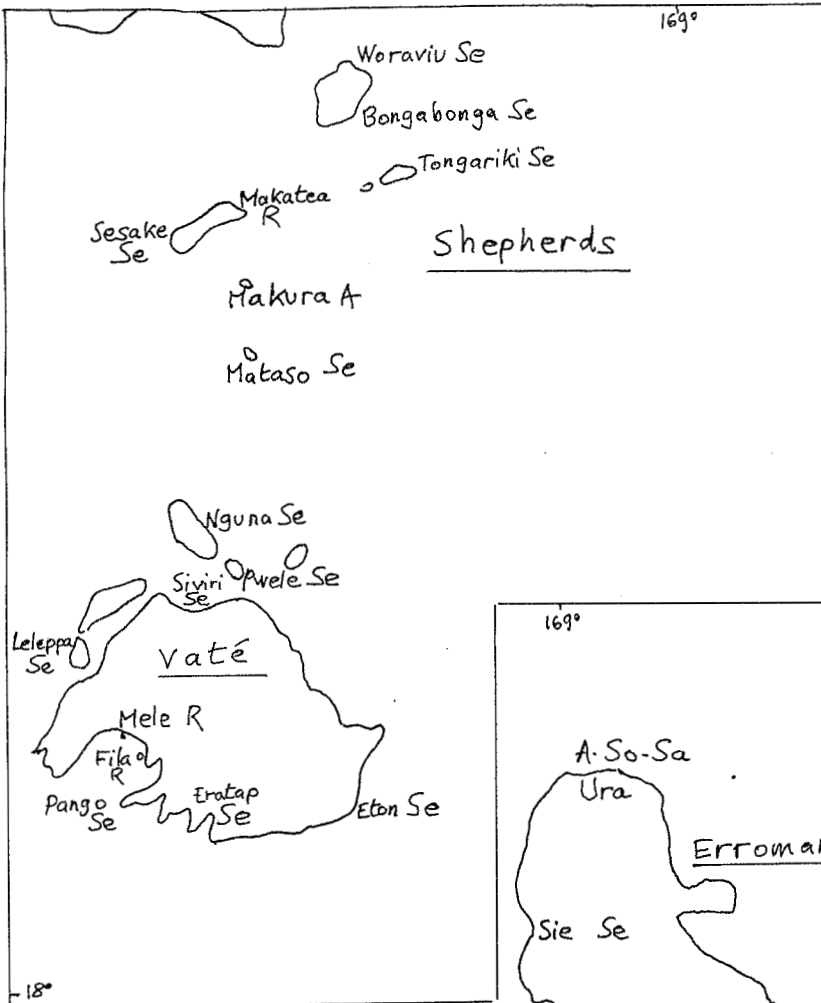 169°
Woraviu Se
Bongabonga Se
Tongariki Se
Makatea
R
Sesake
Se
Shepherds
Makura A
Mataso Se
Nguna Se
Siviri
Se
Pwele Se
Leleppa
Se
Vaté
Mele R
Fila
R
Pango
Se
Eratap
Se
Eton Se
169°
A-So-Sa
Ura
Erroman
Sie Se
18°